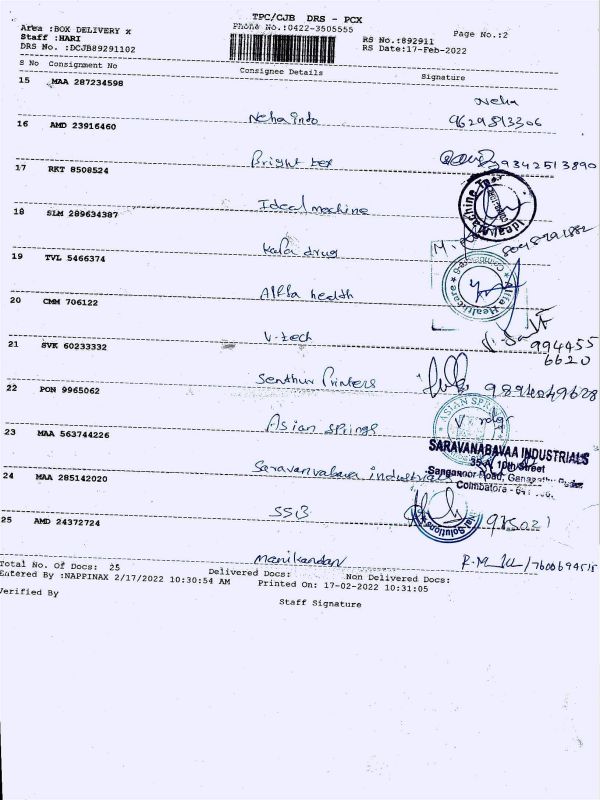 TPC/CJB DRS - PCX
Area :BOX DELIVERY x
Phone No.:0422-3505555
Page No.:2
Staff :HARI
RS No.:892911
DRS No. :DCJB89291102
RS Date:17-Feb-2022
S No Consignment No Consignee Details Signature
15 MAA 287234598
Neha info Neha
9629813306
16 AMD 23916460
Bright tex 9342513890
17 RKT 8508524
Ideal machine
18 SLM 289634387
Kala drug
19 TVL 5466374
Alffa health
Alffa Healthcare
20 CMM 706122
V-tech
994455
6620
21 SVK 60233332
Senthur Printers 9894049628
22 PON 9965062
Asian Springs
ASIAN SPRINGS
23 MAA 563744226
SARAVANABAVAA INDUSTRIALS
10th Street
Sanganoor Road, Ganapathy
Coimbatore
Saravanabava industrials
24 MAA 285142020
SSB
Solutions
25 AMD 24372724
Manikandan 7600694515
Total No. Of Docs: 25 Delivered Docs: Non Delivered Docs:
Entered By :NAPPINAX 2/17/2022 10:30:54 AM Printed On: 17-02-2022 10:31:05
Verified By
Staff Signature